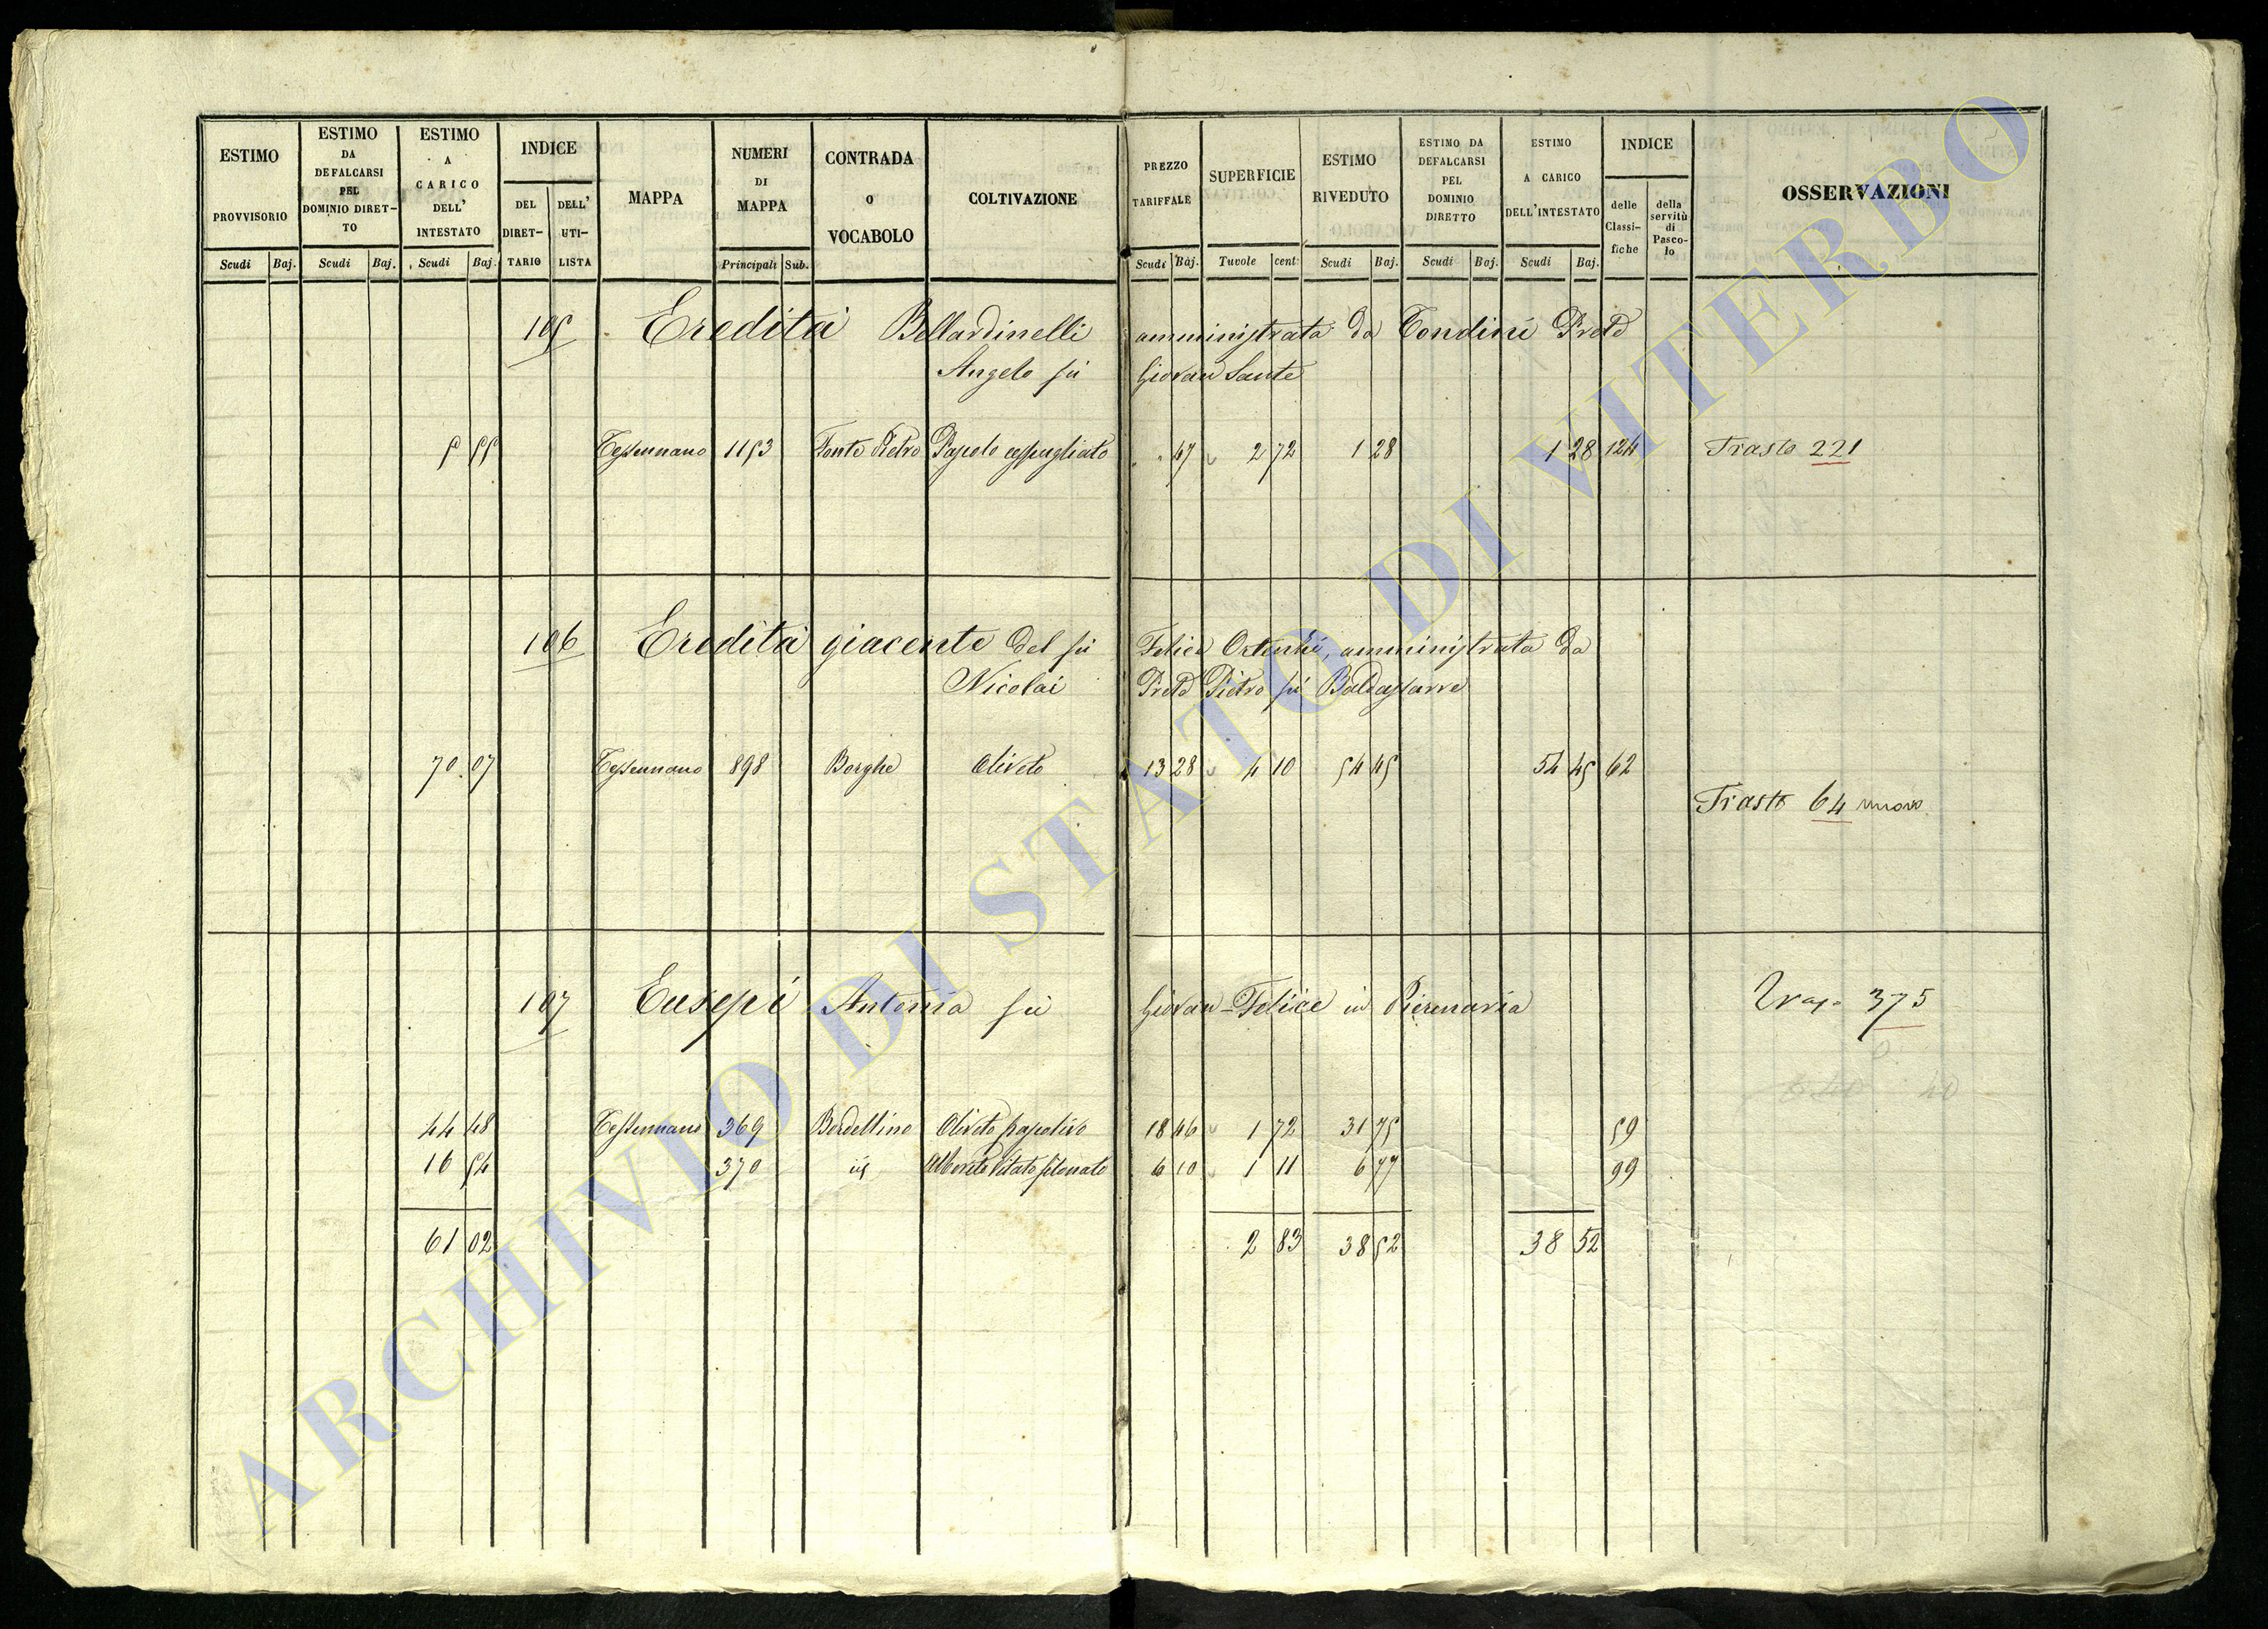 ESTIMO PROVVISORIO Scudi Baj.
ESTIMO DA DEFALCARSI PEL DOMINIO DIRET- TO Scudi Baj.
ESTIMO A CARICO DELL' INTESTATO Scudi Baj.
INDICE DEL DIRET- TARIO DELL' UTI- LISTA
MAPPA
NUMERI DI MAPPA Principali Sub.
CONTRADA O VOCABOLO
COLTIVAZIONE
PREZZO TARIFFALE Scudi Baj.
SUPERFICIE Tavole cent.
ESTIMO RIVEDUTO Scudi Baj.
ESTIMO DA DEFALCARSI PEL DOMINIO DIRETTO Scudi Baj.
ESTIMO A CARICO DELL'INTESTATO Scudi Baj.
INDICE delle Classi- fiche della servitù di Pasco- lo
OSSERVAZIONI
105 Eredità Bellardinelli amministrata da Tondini Preto
Angelo fù Giovan Sante
5 55 Tessennano 1153 Fonte Pietro Pascolo cespugliato 47 2 72 1 28 1 28 124 Trasto 221
106 Eredità giacente del fù Felice Ortenzi, amministrata da
Nicolai Preto Pietro fù Baldassarre
70 07 Tessennano 898 Borghe Oliveto 13 28 4 10 54 45 54 45 62
Trasto 64 nuovo
107 Eusepi Antonia fù Giovan-Felice in Piermaria Trasp. 375
44 48 Tessennano 369 Bordellino Oliveto pascolivo 18 46 1 72 31 75 59
16 54 370 id. Alborato Vitato 6 10 1 11 6 77 99
61 02 2 83 38 52 38 52
ARCHIVIO DI STATO DI VITERBO